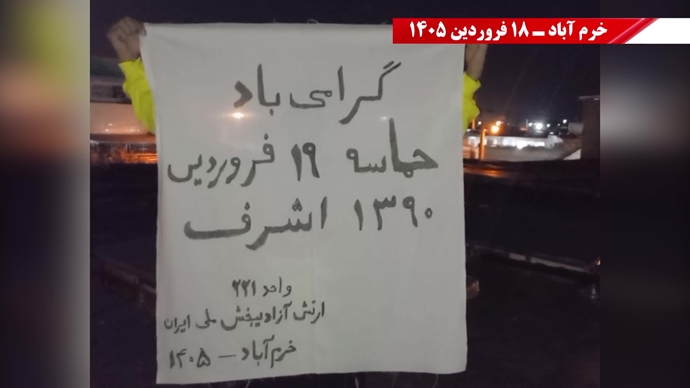 خرم آباد ــ ۱۸ فروردین ۱۴۰۵
گرامی باد
حماسه ۱۹ فروردین
۱۳۹۰ اشرف
واحد ۲۲۱
ارتش آزادیبخش ملی ایران
خرم آباد – ۱۴۰۵